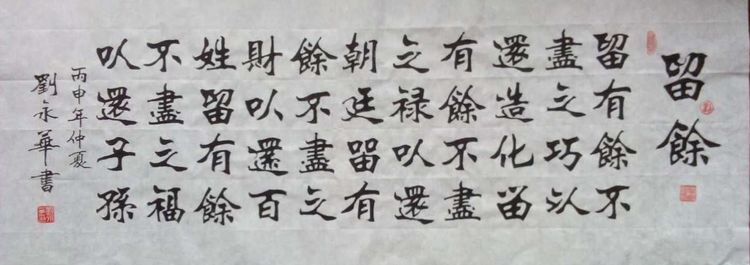 留餘
留有餘不
盡之巧以
還造化留
有餘不盡
之禄以還
朝廷留有
餘不盡之
財以還百
姓留有餘
不盡之福
以還子孫
丙申年仲夏
劉永華書